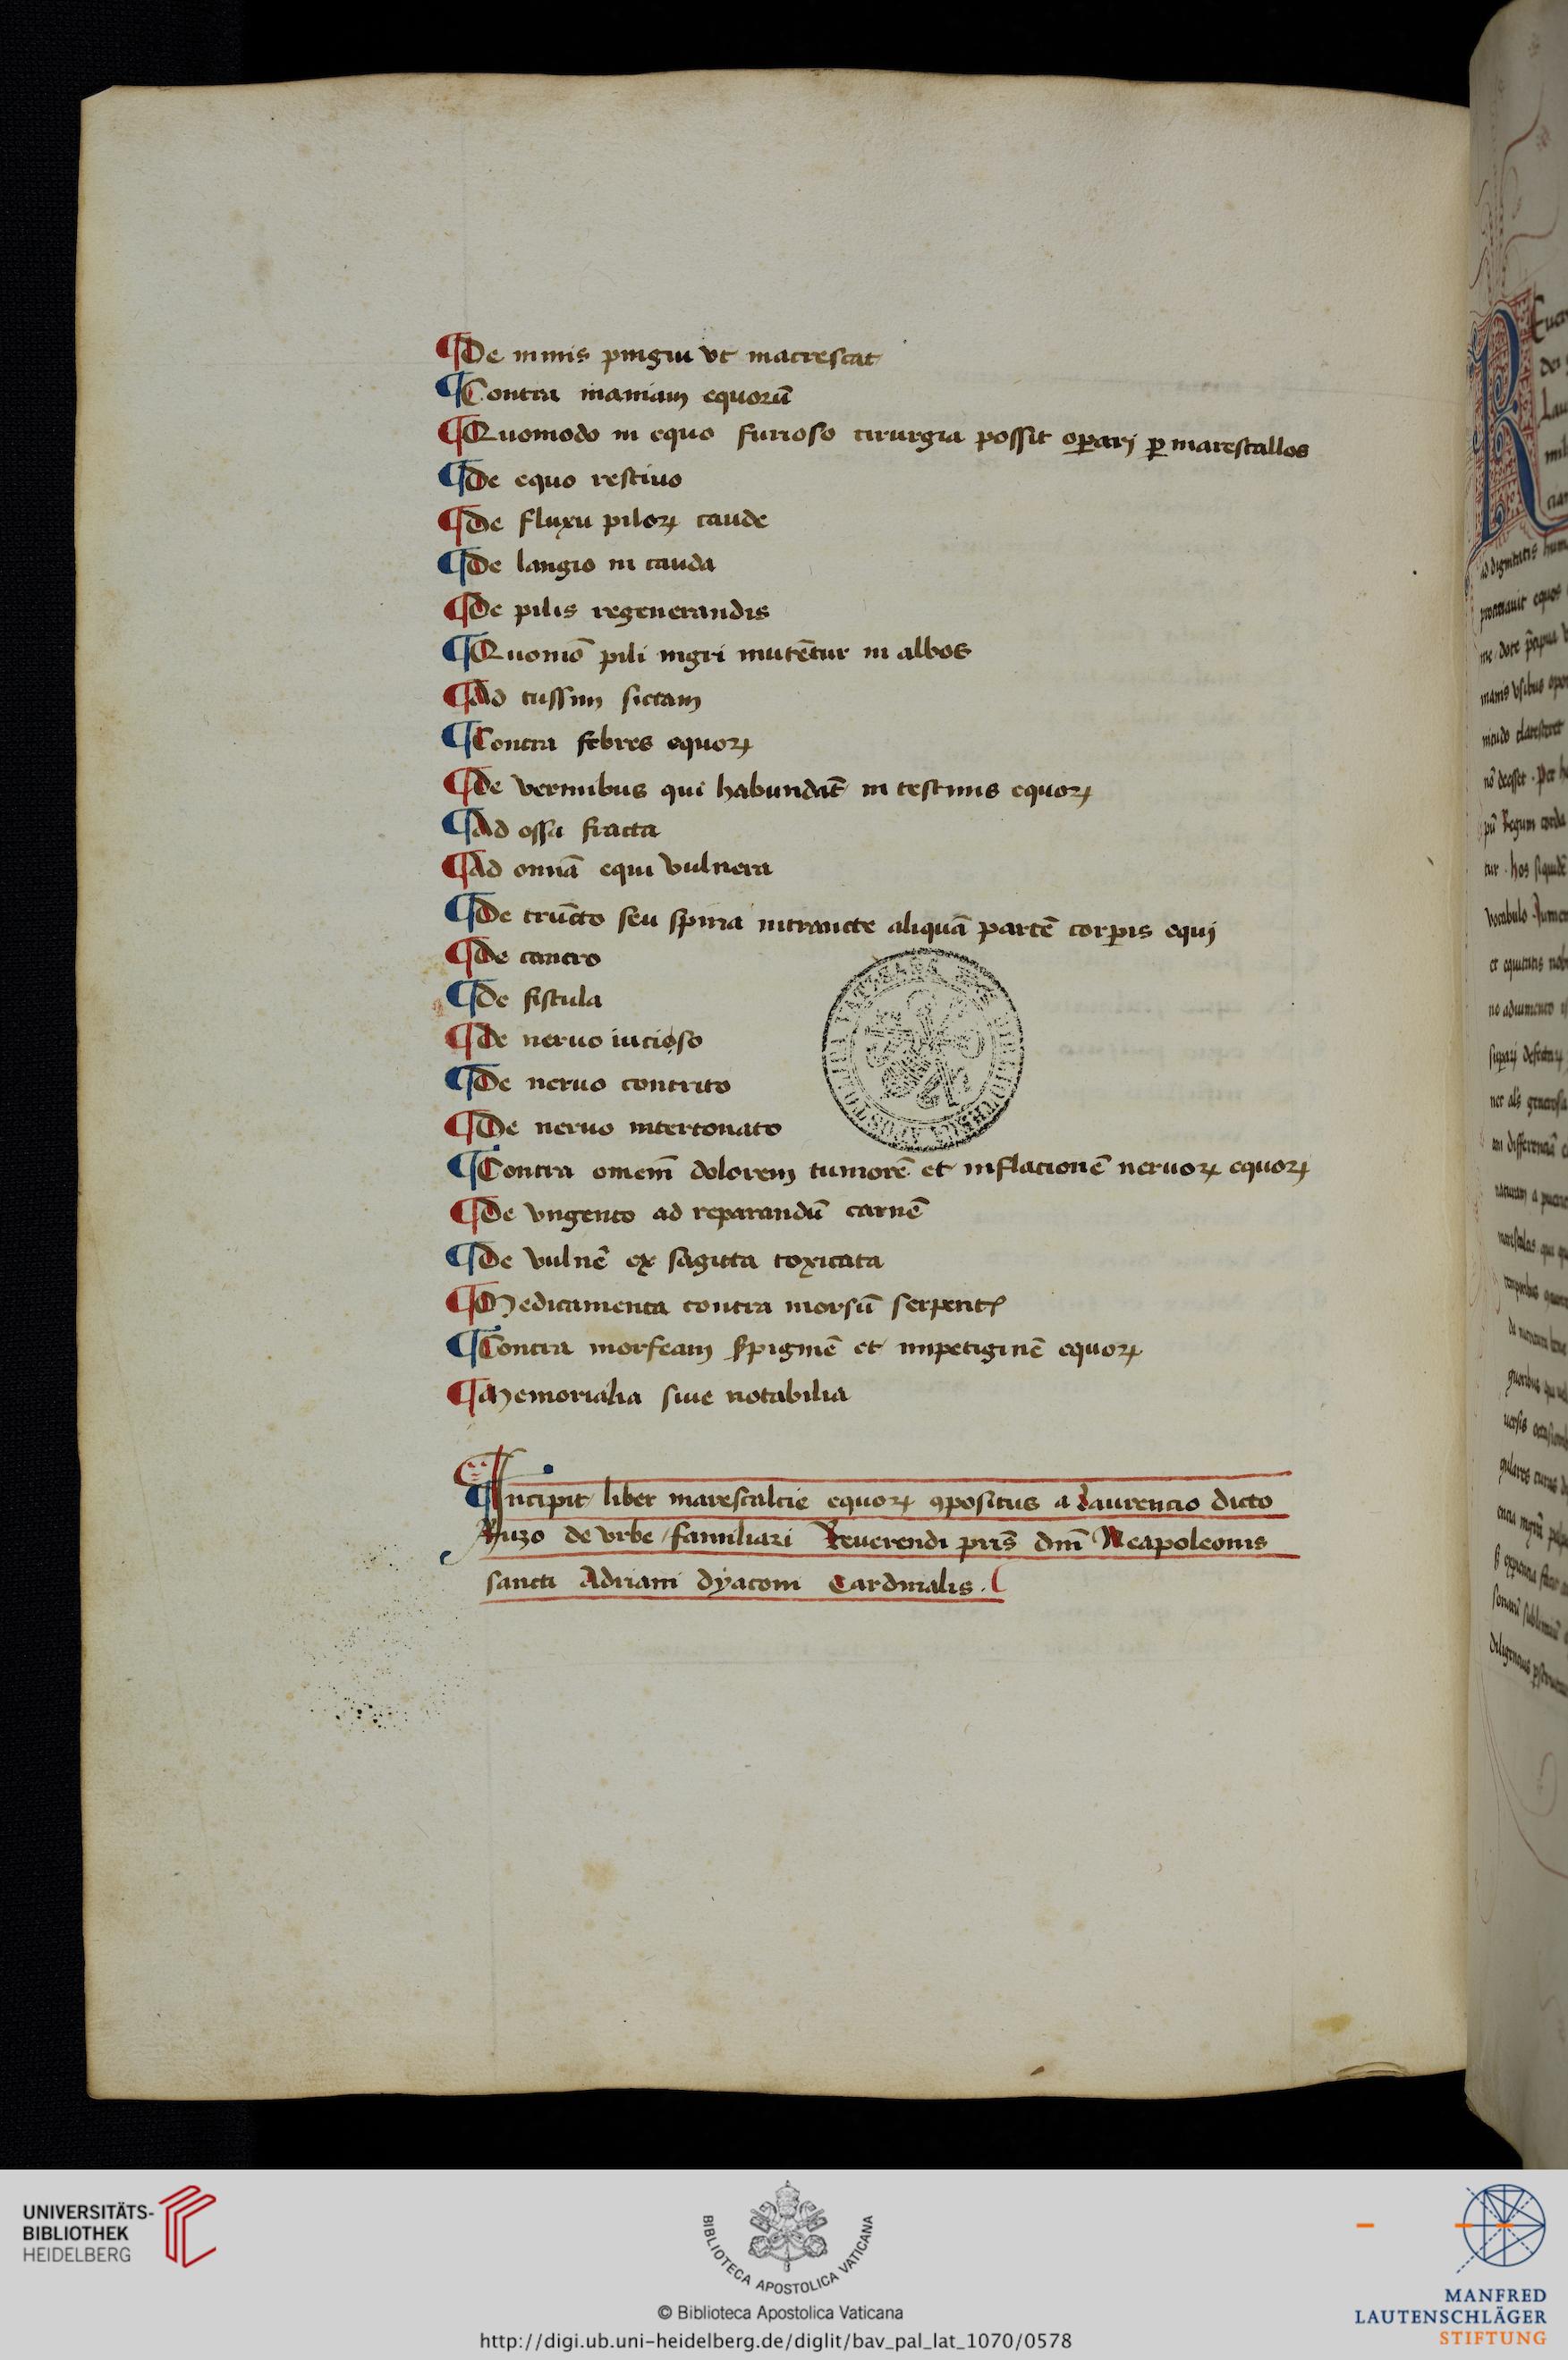 ¶De nimis pingui vt macrescat
¶Contra maniam equorū
¶Quomodo in equo furioso cirurgia possit oꝑari ꝑ marescallos
¶De equo restiuo
¶De fluxu piloꝝ caude
¶De langio in cauda
¶De pilis regenerandis
¶Quomō pili nigri mutētur in albos
¶Ad tussim siccam
¶Contra febres equoꝝ
¶De vermibus qui habundāt in testinis equoꝝ
¶Ad ossa fracta
¶Ad omīa equi vulnera
¶De trūcto seu spina intrancte aliquā partē corꝑis equi
¶De cancro
¶De fistula
¶De neruo incioso
¶De neruo contrito
¶De neruo intertonato
¶Contra omem̄ dolorem tumorē et inflacionē neruoꝝ equoꝝ
¶De vngento ad reparandū carnē
¶De vulnē ex sagitta toxicata
¶Medicamenta contra morsū serpentꝭ
¶Contra morfeam ẜpiginē et inpetiginē equoꝝ
¶Memorialia siue notabilia
¶Incipit liber marescalcie equoꝝ ꝯpositus a Laurencio dicto
Ruzo de vrbe familiari Reuerendi pris̄ dnī Neapoleonis
sancti Adriani dyaconi Cardinalis.
UNIVERSITÄTS-
BIBLIOTHEK
HEIDELBERG
BIBLIOTECA APOSTOLICA VATICANA
© Biblioteca Apostolica Vaticana
http://digi.ub.uni-heidelberg.de/diglit/bav_pal_lat_1070/0578
MANFRED
LAUTENSCHLÄGER
STIFTUNG